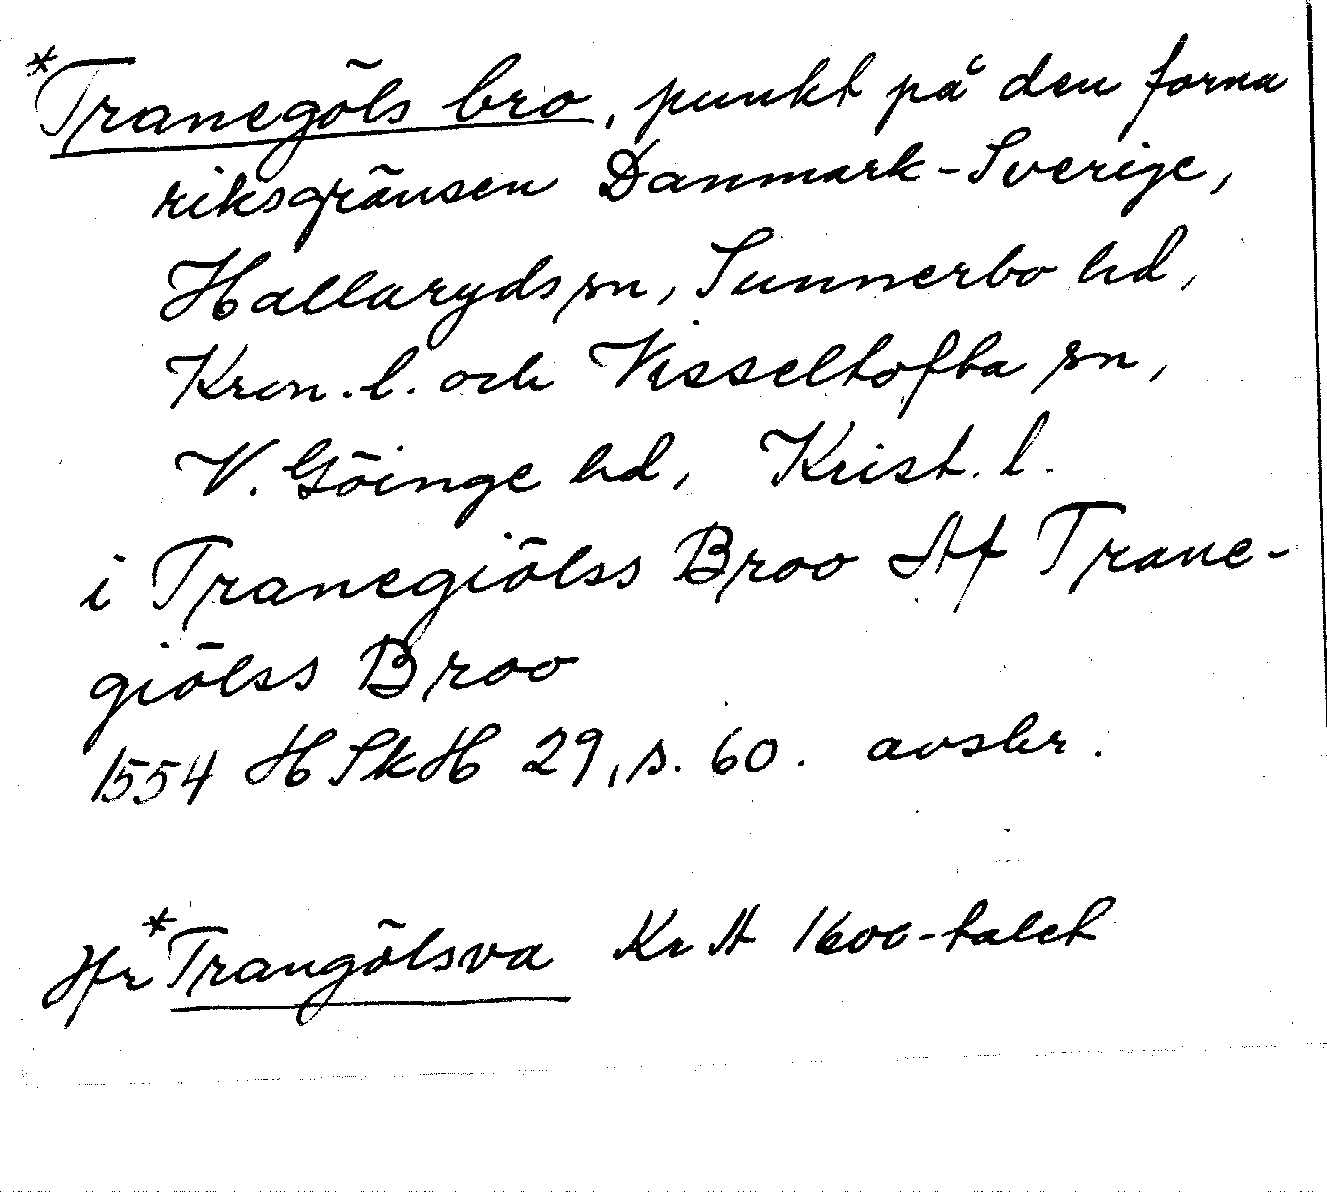 *Tranegöls bro, punkt på den forna
riksgränsen Danmark-Sverige,
Hallaryds sn, Sunnerbo hd,
Kron. l. och Visseltofta sn,
V. Göinge hd, Krist. l.
i Tranegiölss Broo Af Trane-
giölss Broo
1554 HSkH 29, s. 60. avskr.
Jfr *Trangölsva Kr A 1600-talet